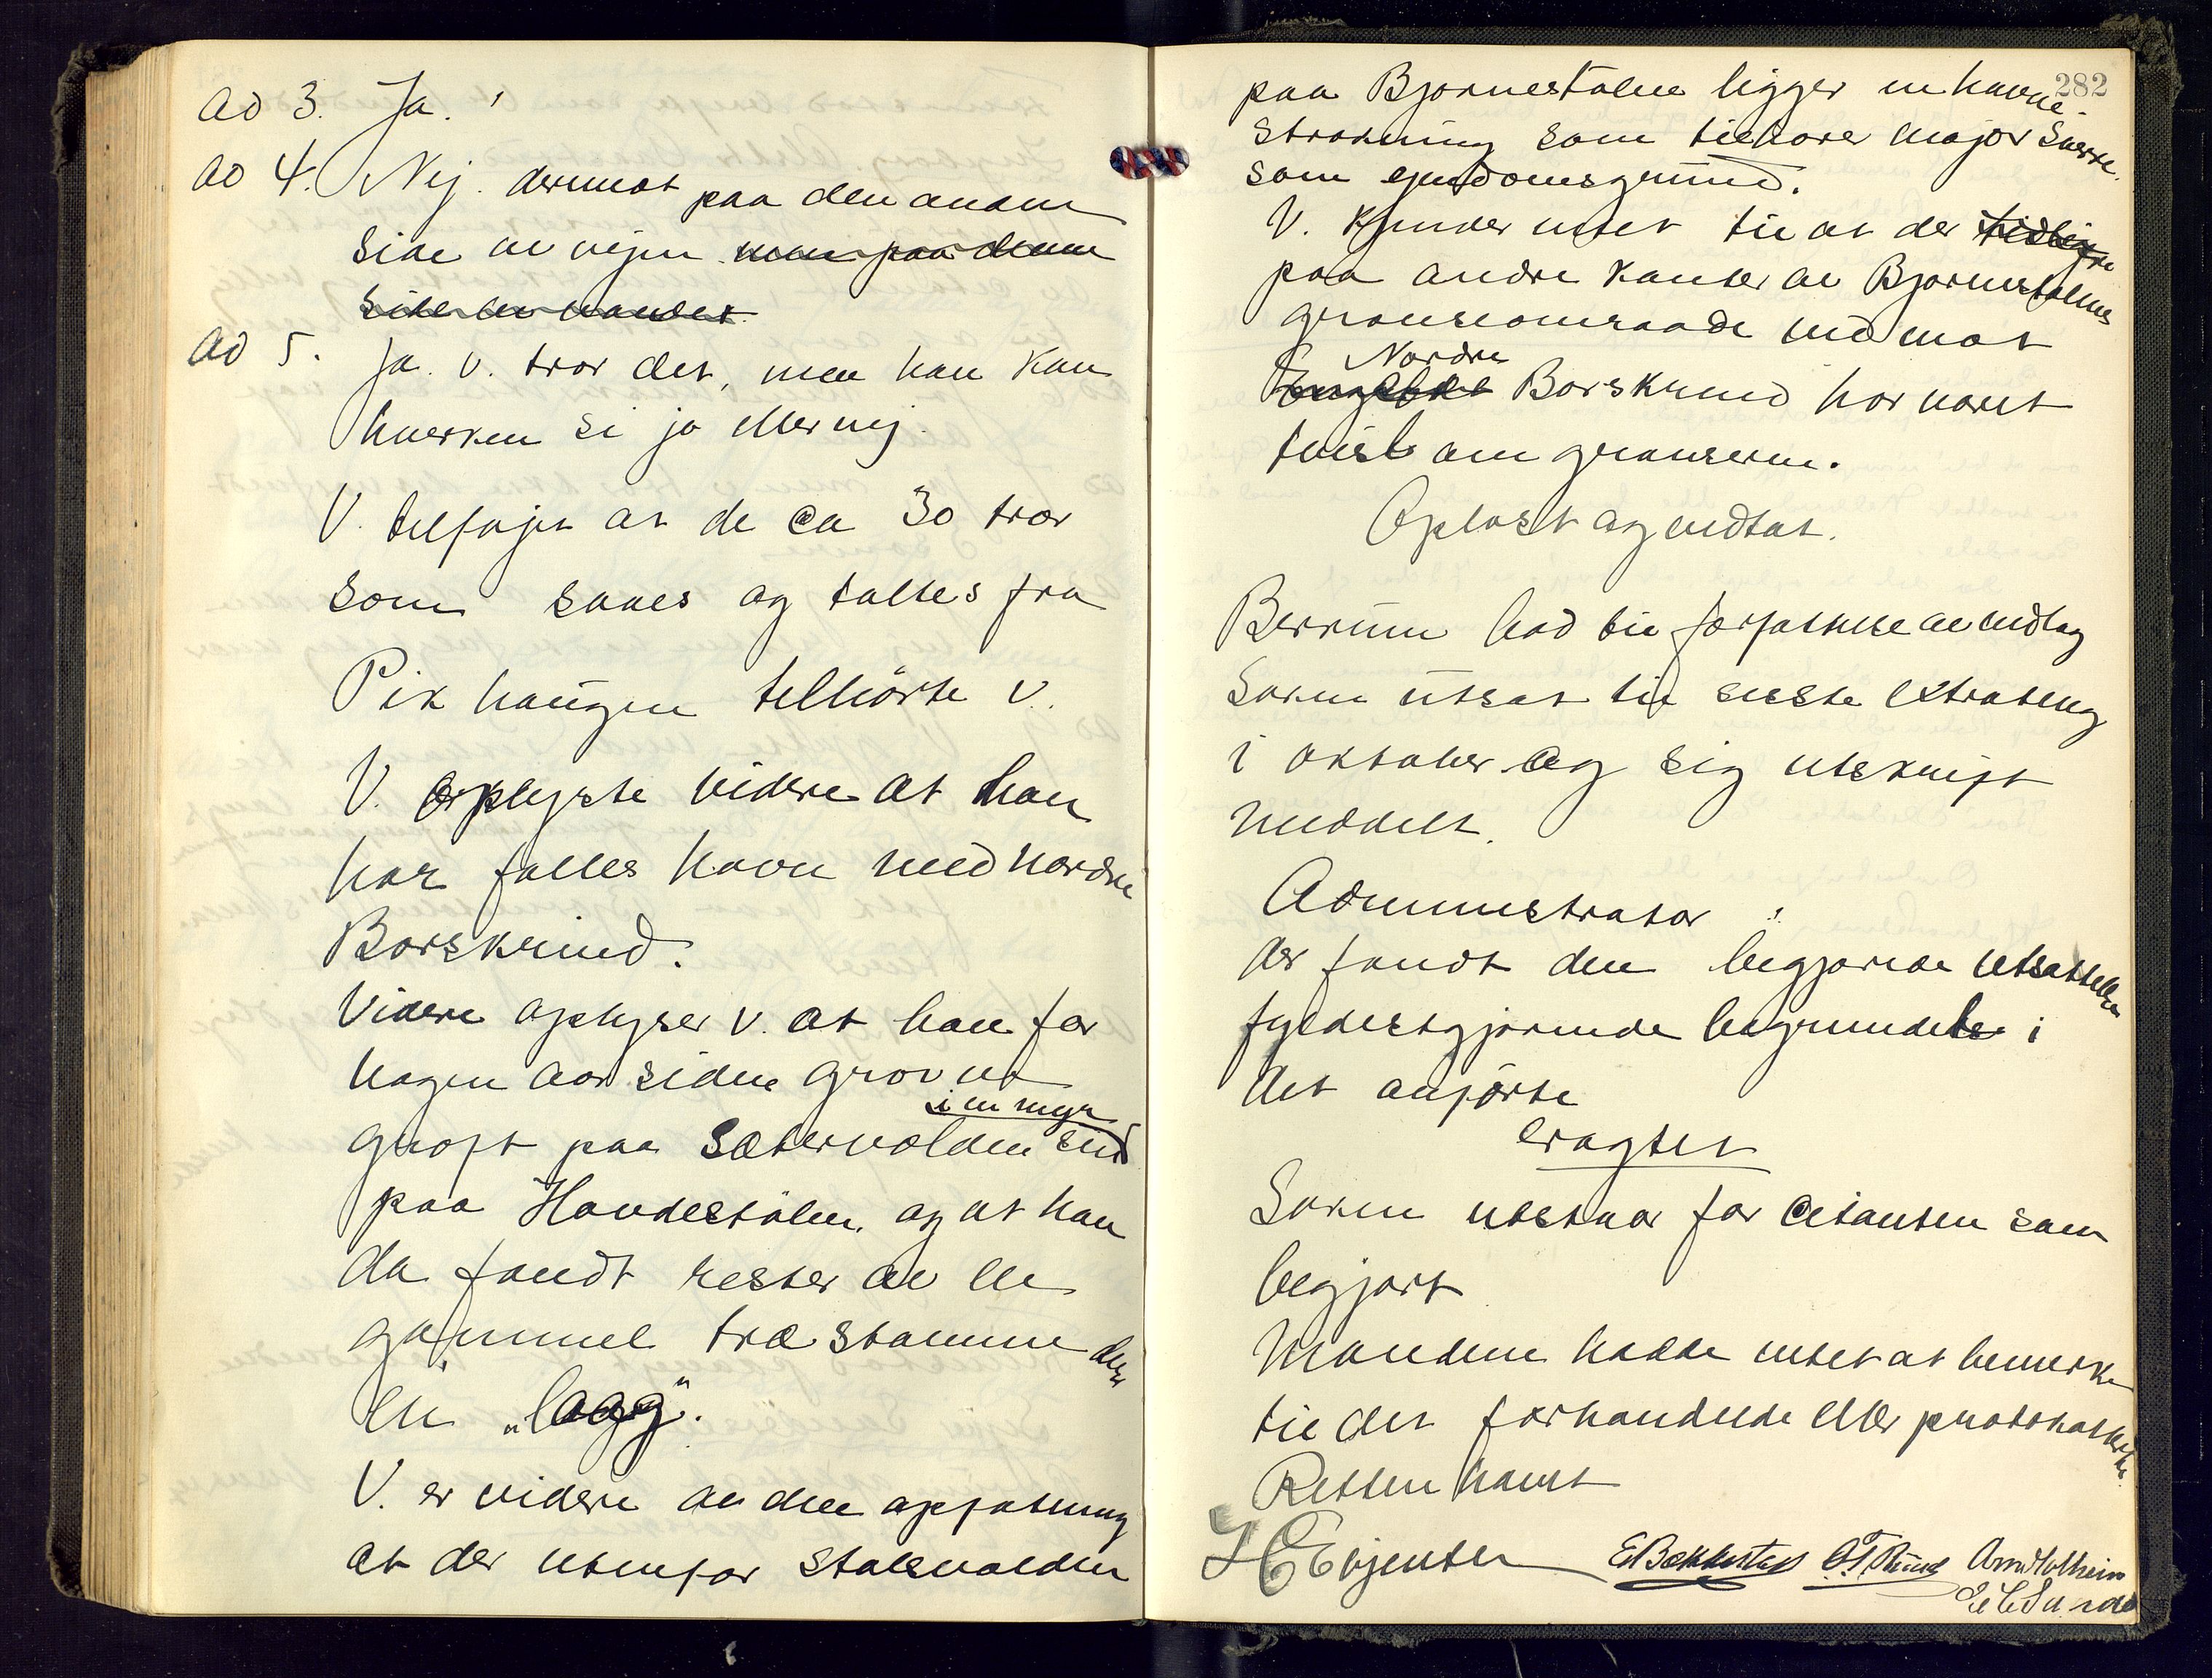 ad 3. Ja.
ad 4. Nej. derimot paa den anden
side av vejen men paa denne
side av vandet
ad 5. Ja. V. tror det, men han kan
hverken si ja eller nej.
V. tilføjet at de ca 30 trær
som saaes og taltes fra
Pikhaugen tilhörte V.
V. oplyste videre at han
har fælles havn med nordre
Borskrud.
Videre oplyser V. at han for
nogen aar siden grov en
i en myr
grøft paa Sætervolden ind
paa Haudestølen, og at han
da fandt rester av en
gammel træstamme
en "lagg".
V. er videre av den opfatning
at der utenfor stølsvolden
282
paa Bjørnestølen ligger en havne-
strækning som tilhører major Sverre
som ejendomsgrund.
V. kjender intet til at der tidligere
paa andre kanter av Bjørnestølens
grænseomraade ind mot
Nordre
Borskrud har været
tvist om grænserne.
Oplæst og vedtat.
Berrum bad til forfatttelse av indlæg
Saken utsat til siste extrating
i oktober og sig utskrift
meddelt.
Administrator
der fandt den begjærede utsættelse
fyldestgjørende begrundet i
det anførte
eragtet
Saken utstaar for citanten som
begjært
Mændene hadde intet at bemerke
til det forhandlede eller protokollerte
Retten hævet
H C Evjenter E Bækkestad O. T. Ruud Arne Holtheim
E E Sunde